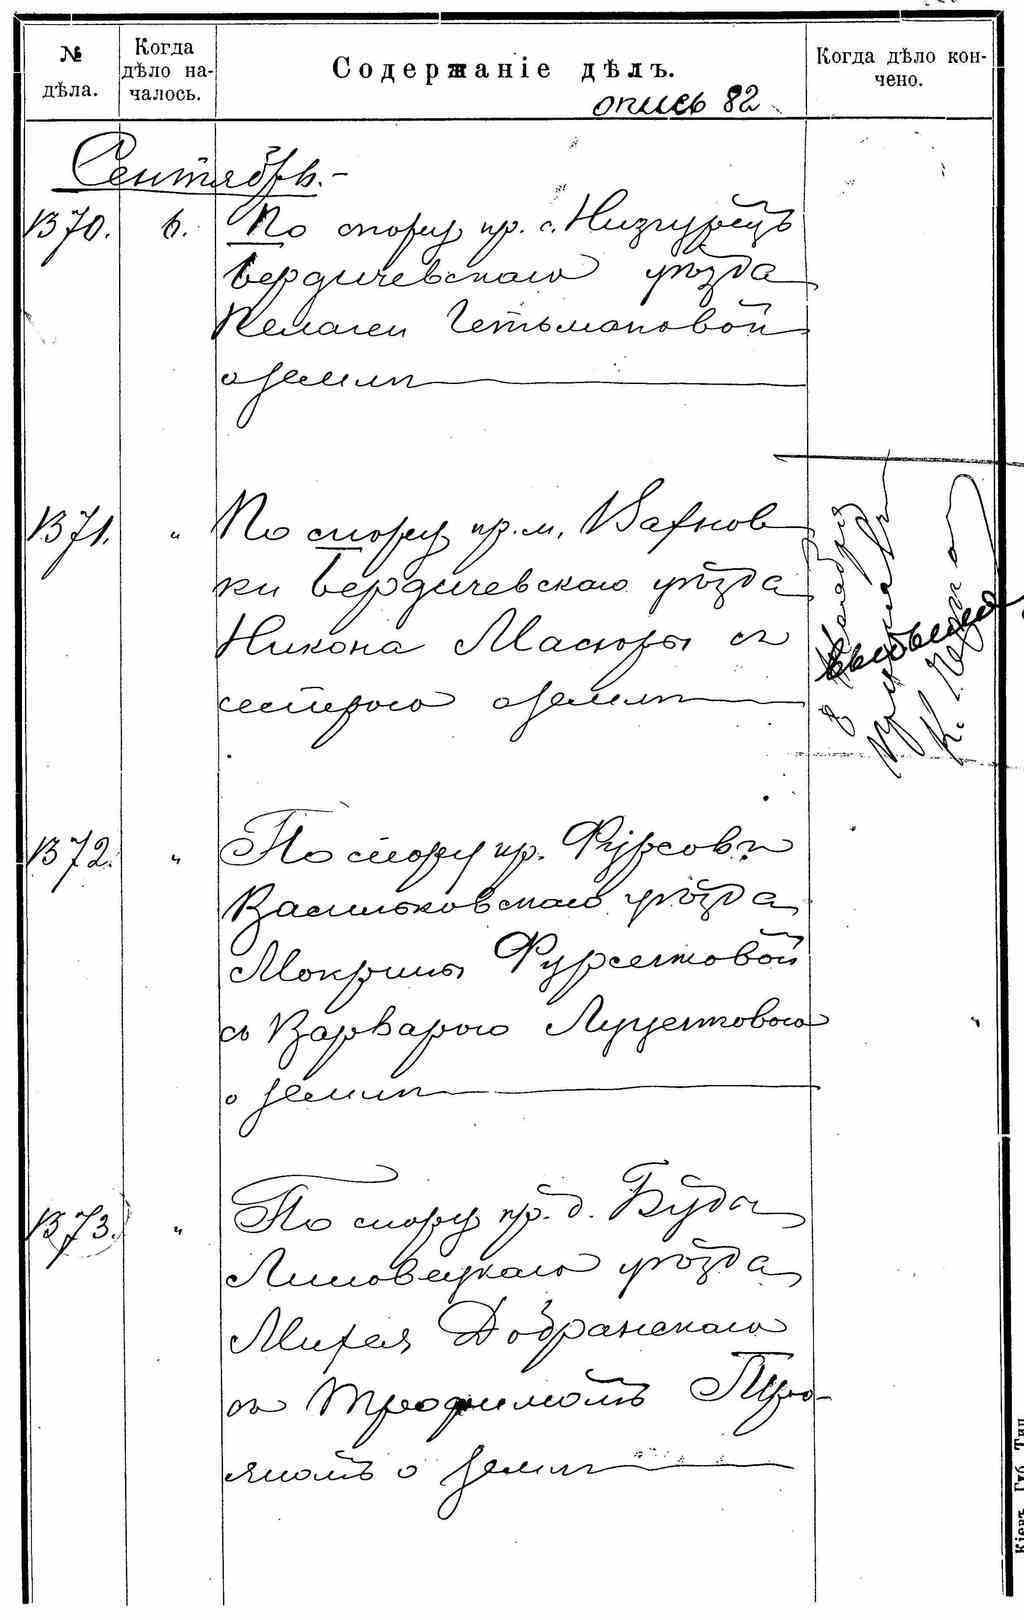 № дѣла.
Когда дѣло на-
чалось.
Содержаніе дѣлъ.
Когда дѣло кон-
чено.
опись 82
Сентябрь.-
1370.
6.
По спору пр. с. Низгурецъ
Бердичевскаго уѣзда
Пелагеи Гетьмановой
о землѣ
1371.
"
По спору пр. м. Вахнов
ки Бердичевскаго уѣзда
Никона Масюры съ
сестрою о землѣ
выбыло
1372.
"
По спору кр. Фурсовъ
Васильковскаго уѣзда
Мокрины Фурсетовой
съ Варварою Луцетовою
о землѣ
"
1373.
"
По спору пр. д. Буда
Липовецкаго уѣзда
Михея Добранскаго
съ Трофимомъ
о землѣ
Кіевъ. Губ. Тип.